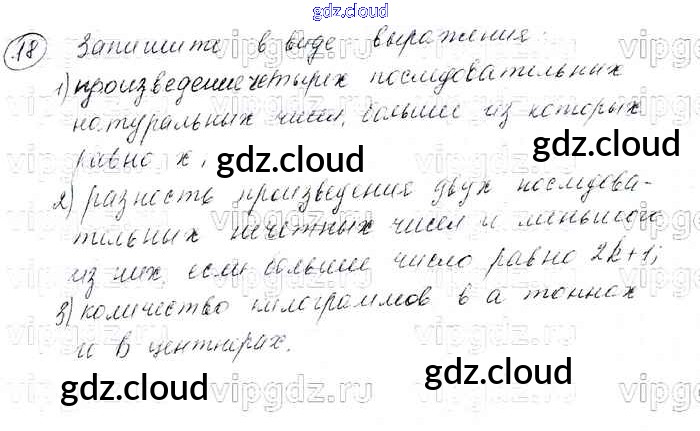 gdz.cloud
18 Запишите в виде выражения:
1) произведение четырех последовательных
натуральных чисел, большее из которых
равно x;
2) разность произведения двух последова-
тельных нечетных чисел и меньшего
из них, если большее число равно 2k+1;
3) количество килограммов в a тоннах
и b центнерах.
gdz.cloud
gdz.cloud
gdz.cloud
gdz.cloud
gdz.cloud
vipgdz.ru